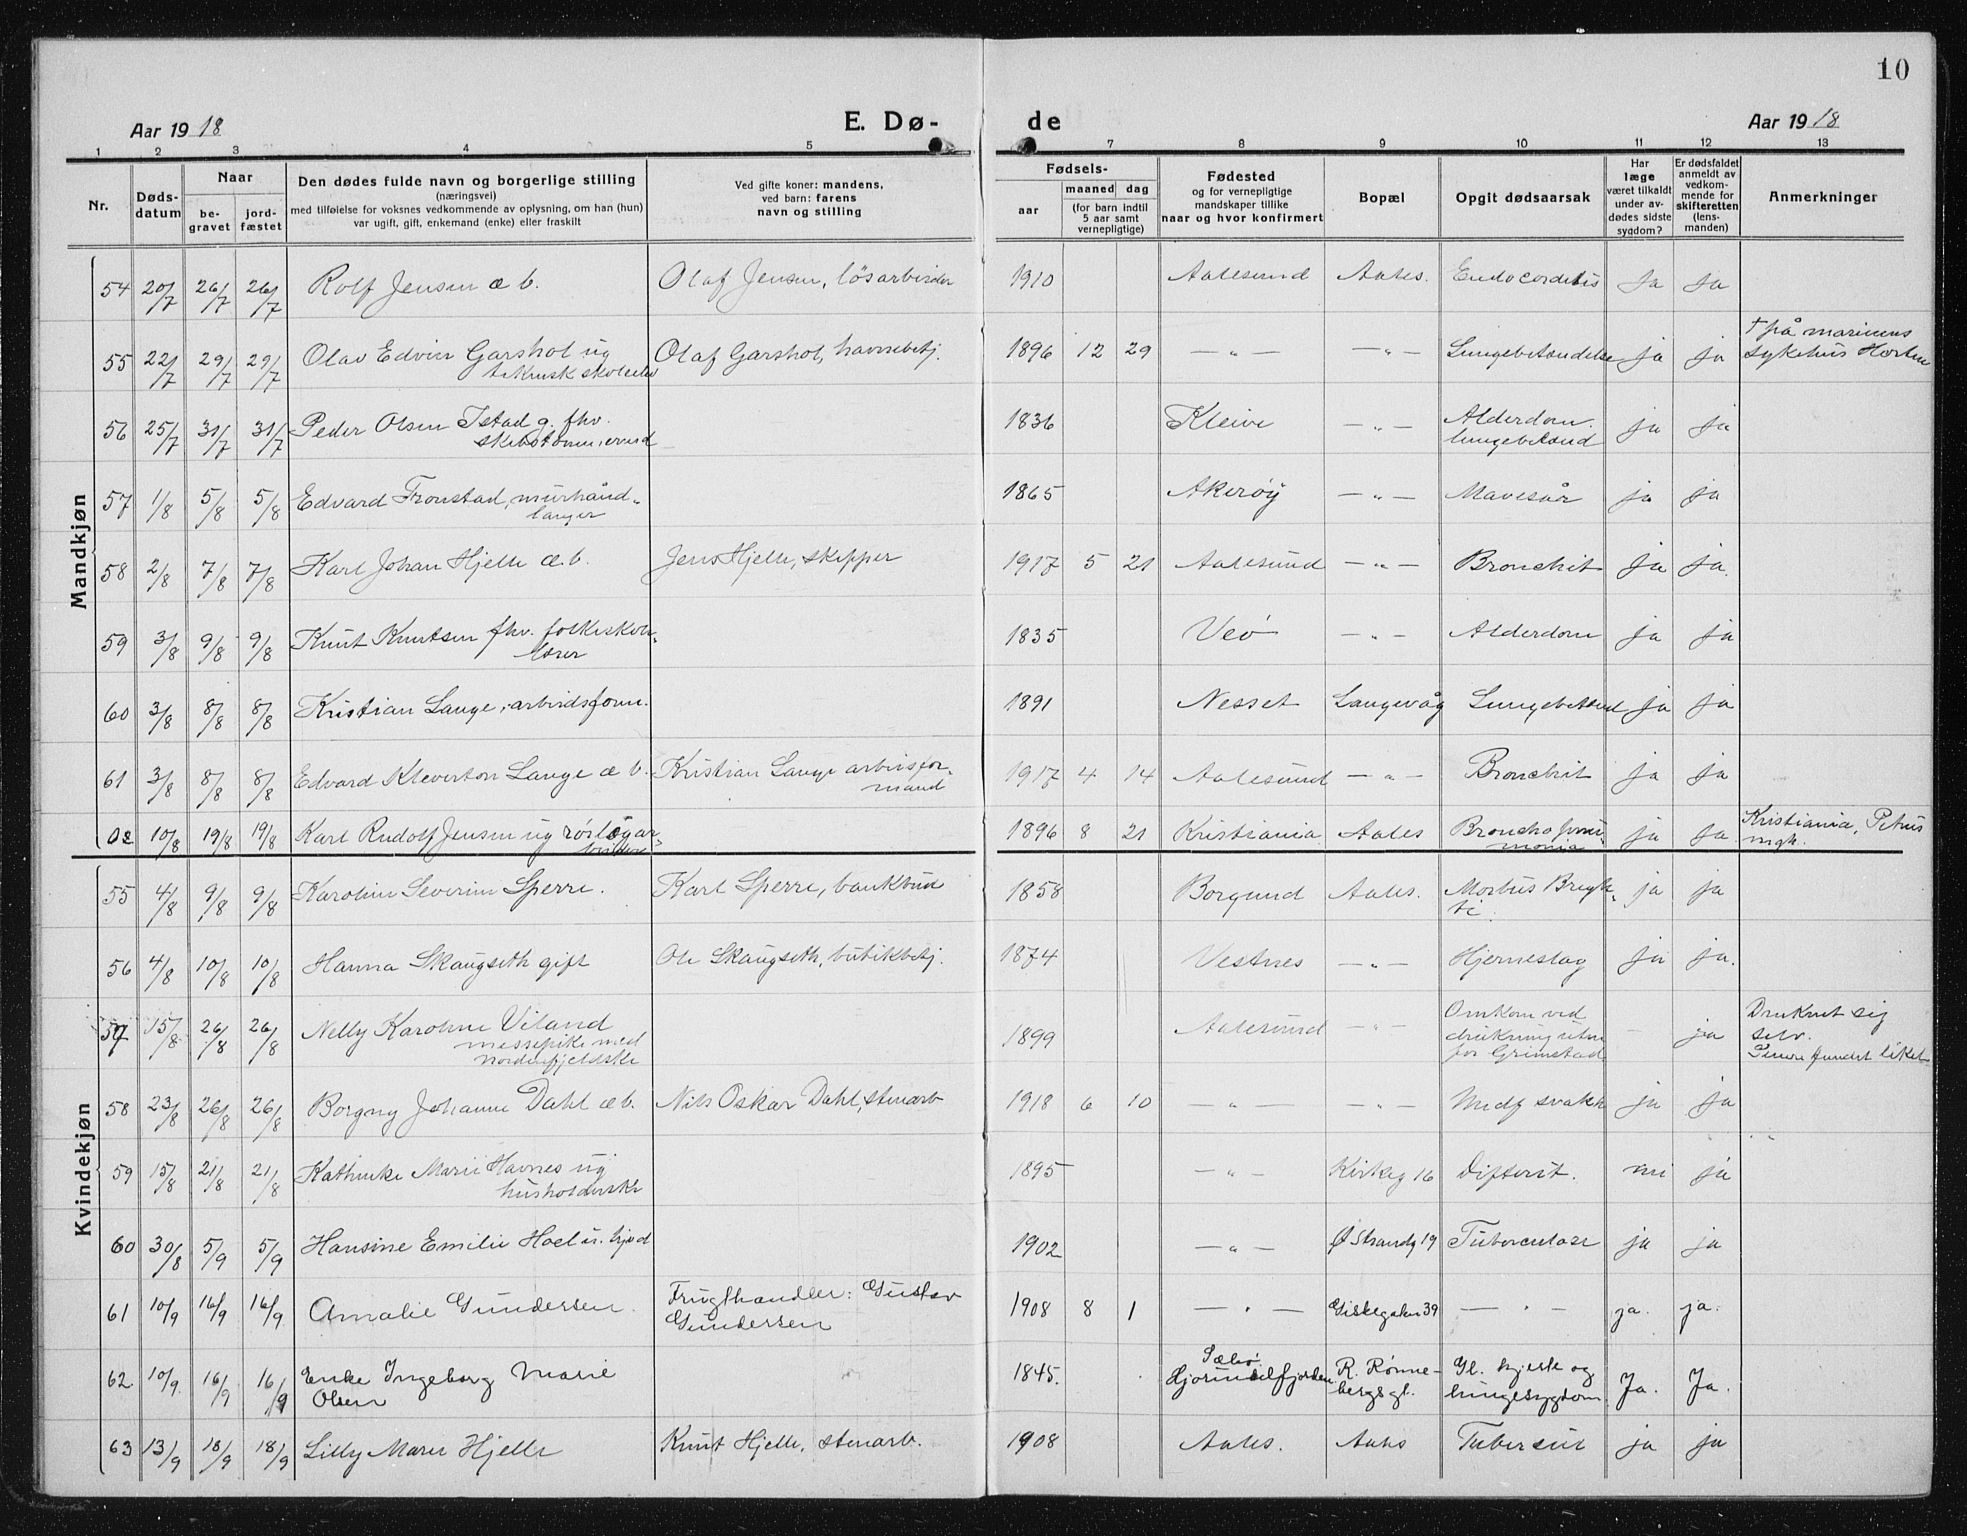 10
Aar 1918 E. Dø- de Aar 1918
1 2 3 4 5 7 8 9 10 11 12 13
Nr. Døds-datum Naar be-gravet jord-fæstet Den dødes fulde navn og borgerlige stilling (næringsvei) med tilføielse for voksnes vedkommende av oplysning, om han (hun) var ugift, gift, enkemand (enke) eller fraskilt Ved gifte koner: mandens, ved barn: farens navn og stilling Fødsels- aar maaned dag (for barn indtil 5 aar samt vernepligtige) Fødested og for vernepligtige mandskaper tillike naar og hvor konfirmert Bopæl Opgit dødsaarsak Har læge været tilkaldt under av-dødes sidste sygdom? Er dødsfaldet anmeldt av vedkom-mende for skifteretten (lens-manden) Anmerkninger
Mandkjøn
54 20/7 26/7 26/7 Rolf Jensen æ b. Olaf Jensen, løsarbeider 1910 Aalesund Aales. Endocorditis Ja Ja
55 22/7 29/7 29/7 Olav Edvin Garshol ug teknisk skoleelev Olaf Garshol, havnebetj. 1896 12 29 — " — — " — Lungebetændelse ja ja † på marinens sykehus Horten
56 25/7 31/7 31/7 Peder Olsen Istad g. fhv. skibstømmermd 1836 Kleive — " — Alderdom. lungebetænd ja ja
57 1/8 5/8 5/8 Edvard Tronstad, murhånd-langer 1865 Akerøy — " — Mavesår ja ja
58 2/8 7/8 7/8 Karl Johan Hjelle æ. b. Jens Hjelle, skipper 1917 5 21 Aalesund — " — Bronchit ja ja.
59 3/8 9/8 9/8 Knut Knutsen fhv. folkeskole-lærer 1835 Veø — " — Alderdom ja ja
60 3/8 8/8 8/8 Kristian Lange, arbeidsform. 1891 Nesset Langevåg Lungebetænd ja ja
61 3/8 8/8 8/8 Edvard Kleverton Lange æ b. Kristian Lange arbeisfor-mand 1917 4 14 Aalesund — " — Bronchit ja ja
62 10/8 19/8 19/8 Karl Rudolf Jensen ug løslogar-beider 1896 8 21 Kristiania Aales Broncho pneu-monia ja ja Kristiania, Petrus mgh.
Kvindekjøn
55 4/8 9/8 9/8 Karoline Severine Sperre. Karl Sperre, bankbud 1858 Borgund Aales. Morbus Brigh-ti. ja ja
56 4/8 10/8 10/8 Hanna Skaugseth gift Ole Skaugseth, butikbetj. 1874 Vestnes — " — Hjerneslag ja ja.
57 15/8 26/8 26/8 Nelly Karoline Viland messepike med Nordenfjeldske 1899 Aalesund — " — Omkom ved drukning uten for Grimstad — ja Druknet sig selv. Senere fundet liket
58 23/8 26/8 26/8 Borgny Johanne Dahl æ b. Nils Oskar Dahl, stenarb 1918 6 10 — " — — " — Medf svakh ja ja
59 15/8 21/8 21/8 Kathinke Marie Havnes ug husholderske 1895 — " — Kirkeg 16 Difterit. nei ja
60 30/8 5/9 5/9 Hansine Emilie Hoel u. hjvd 1902 — " — Ø Strandg 19 Tuberculose ja ja
61 10/9 16/9 16/9 Amalie Gundersen. Frugthandler: Gustav Gundersen 1908 8 1 — " — Giskegaten 39 — " — ja. ja.
62 10/9. 16/9 16/9 Enke Ingeborg Marie Olsen 1845. Sæbø Hjorundfjorden. R. Rønne-bergsgt. Gl. hjerte og lungesygdom. Ja. Ja.
63 13/9 18/9 18/9 Lilly Marie Hjelle Knut Hjelle, stenarb. 1908 Aales. Aales Tubersul ja ja